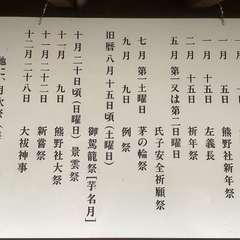 一月 一日 熊野社新年祭
一月 十五日 左義長
二月 十五日 祈年祭
五月 第一又は第二日曜日
氏子安全祈願祭
七月 第一土曜日 茅の輪祭
九月 九日 例祭
旧暦八月十五日頃(土曜日)
御鴛龍祭[芋名月]
十月二十日頃(日曜日)景雲祭
十一月 九日 熊野社大祭
十一月二十三日 新嘗祭
十二月二十八日 大祓神事